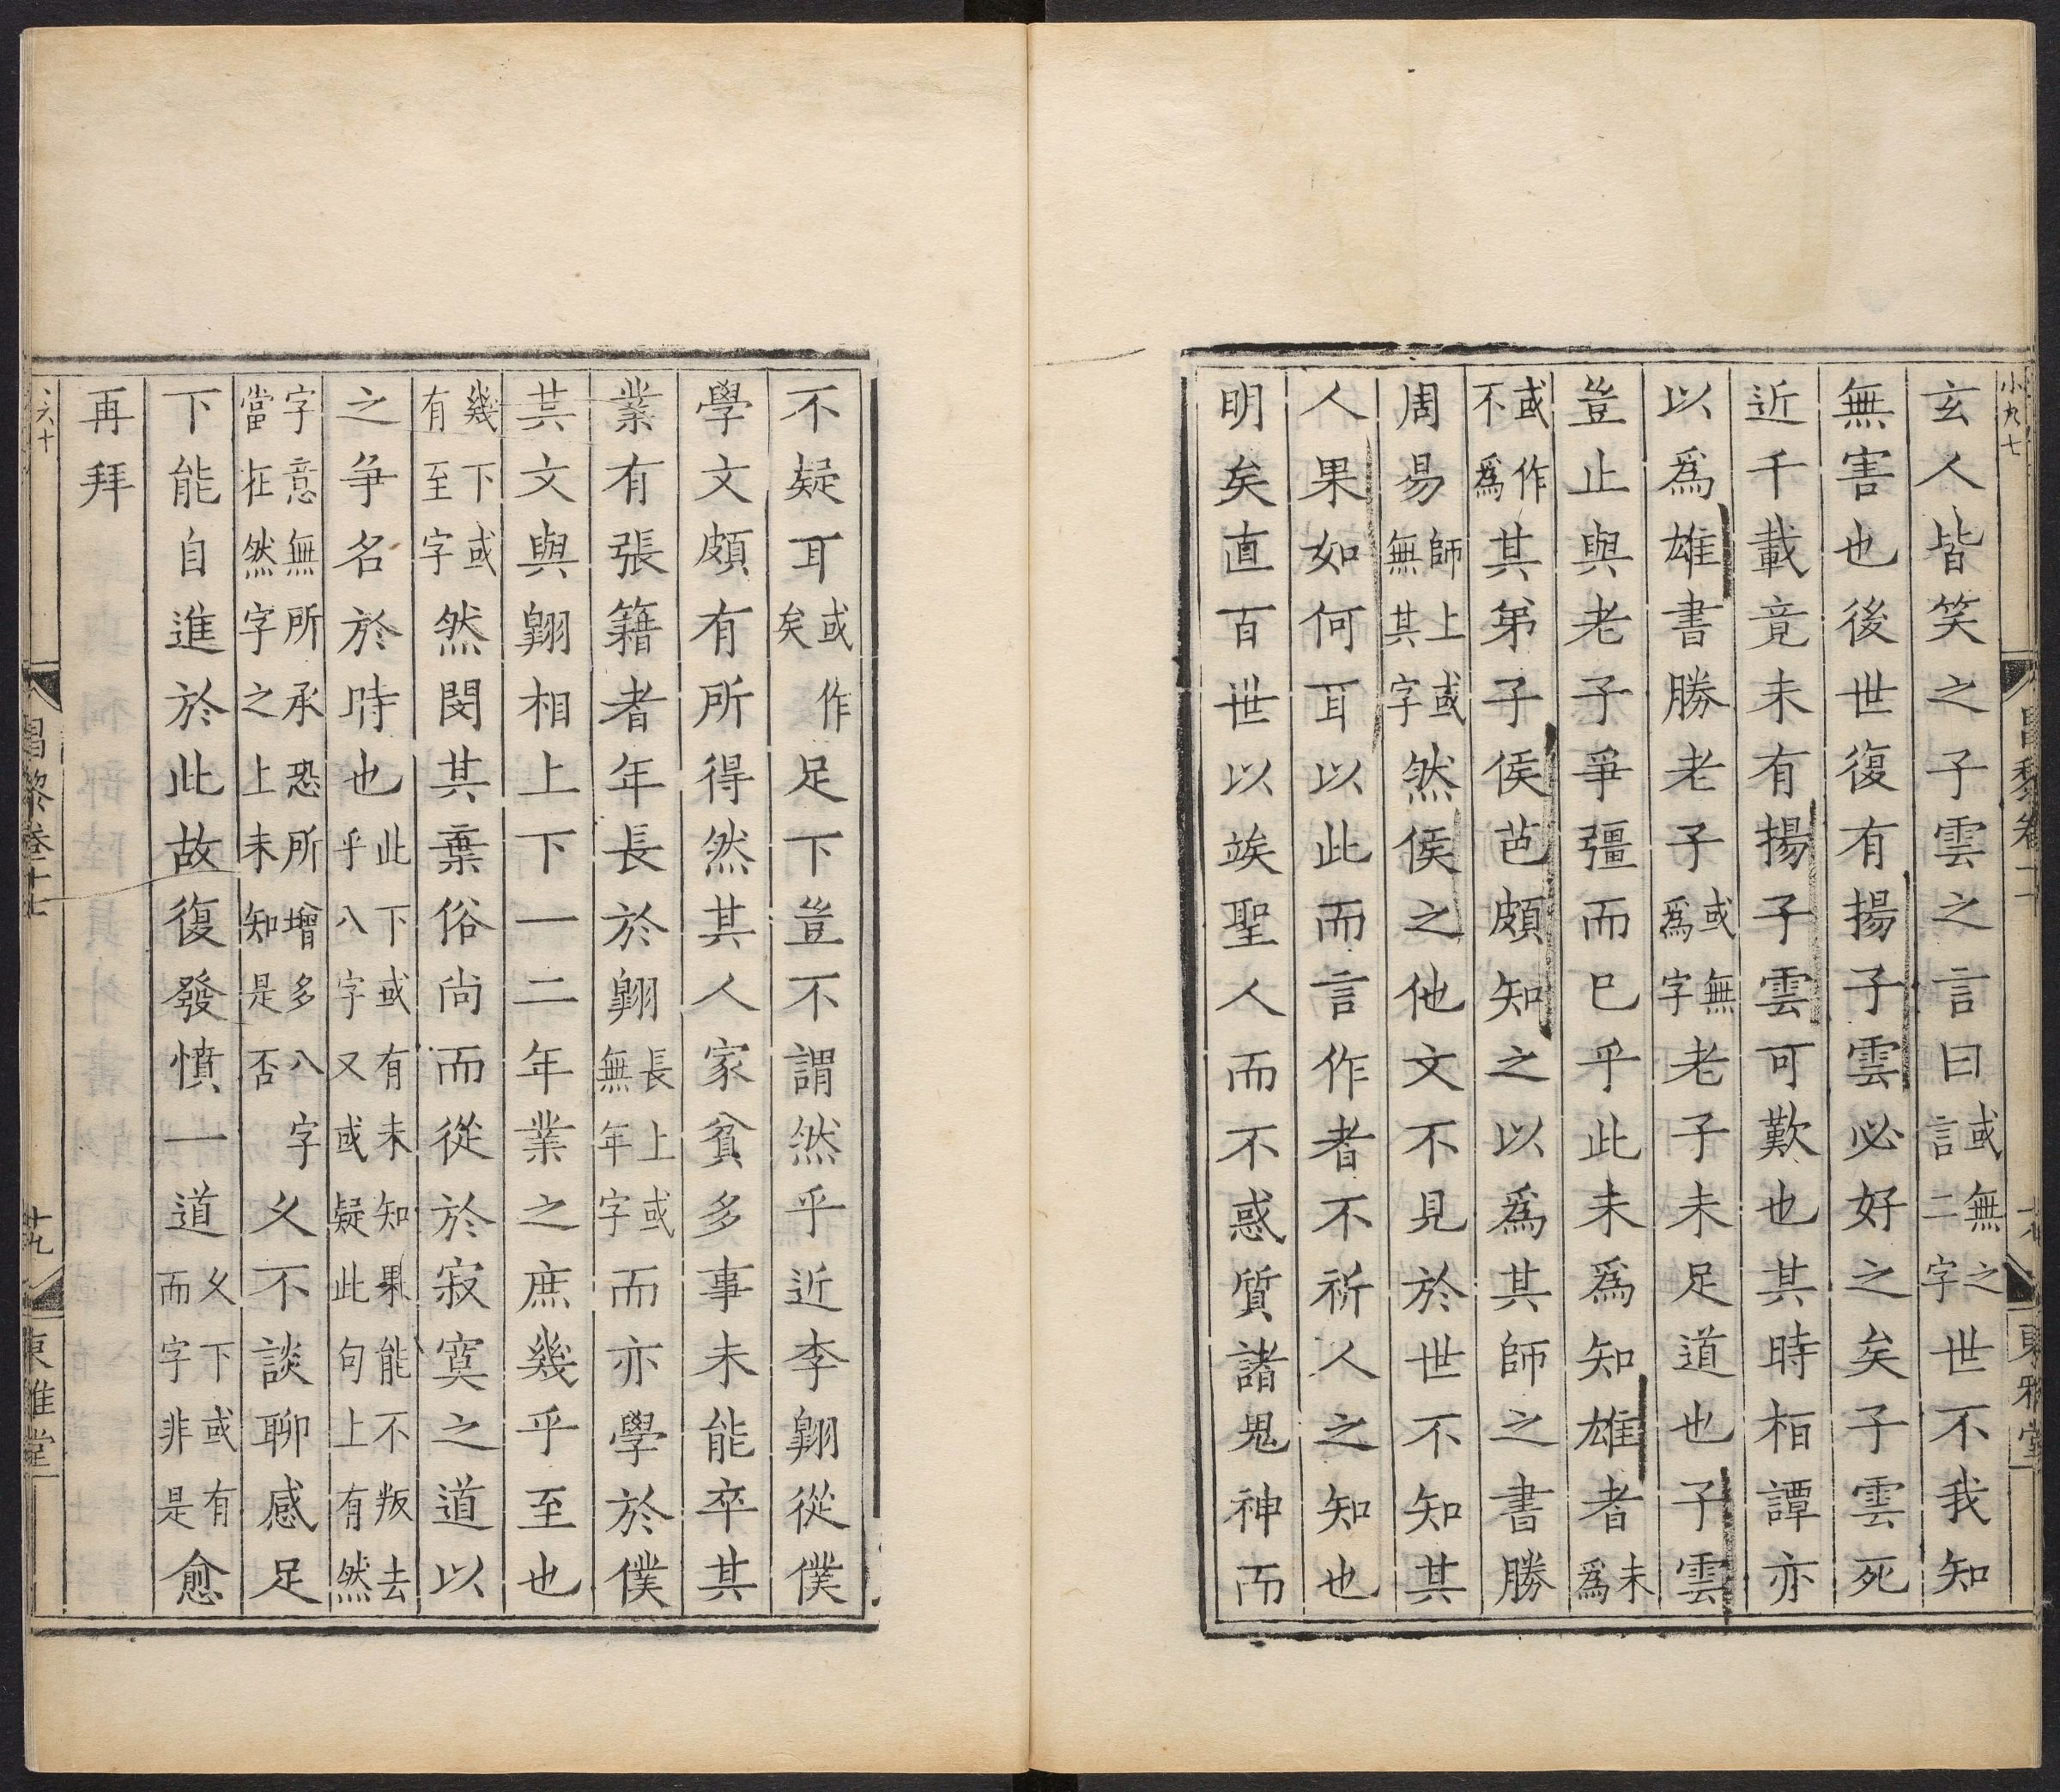 小九七
昌黎卷十
東雅堂
玄人皆笑之子雲之言曰或無之言二字世不我知
無害也後世復有揚子雲必好之矣子雲死
近千載竟未有揚子雲可歎也其時栢譚亦
以爲雄書勝老子或無爲字老子未足道也子雲
豈止與老子爭彊而巳乎此未爲知雄者未爲
或作不爲其弟子侯芭頗知之以爲其師之書勝
周易師上或無其字然侯之他文不見於世不知其
人果如何耳以此而言作者不祈人之知也
明矣直百世以竢聖人而不惑質諸鬼神而
不疑耳或作矣足下豈不謂然乎近李翺從僕
學文頗有所得然其人家貧多事未能卒其
業有張籍者年長於翺長上或無年字而亦學於僕
其文與翺相上下一二年業之庶幾乎至也
幾下或有至字然閔其棄俗尚而從於寂寞之道以
之爭名於時也此下或有未知果能不叛去乎八字又或疑此句上有然
字意無所承恐所增多八字當在然字之上未知是否乆不談聊感足
下能自進於此故復發憤一道乆下或有而字非是愈
再拜
六十
昌黎卷十七
廿九
東雅堂